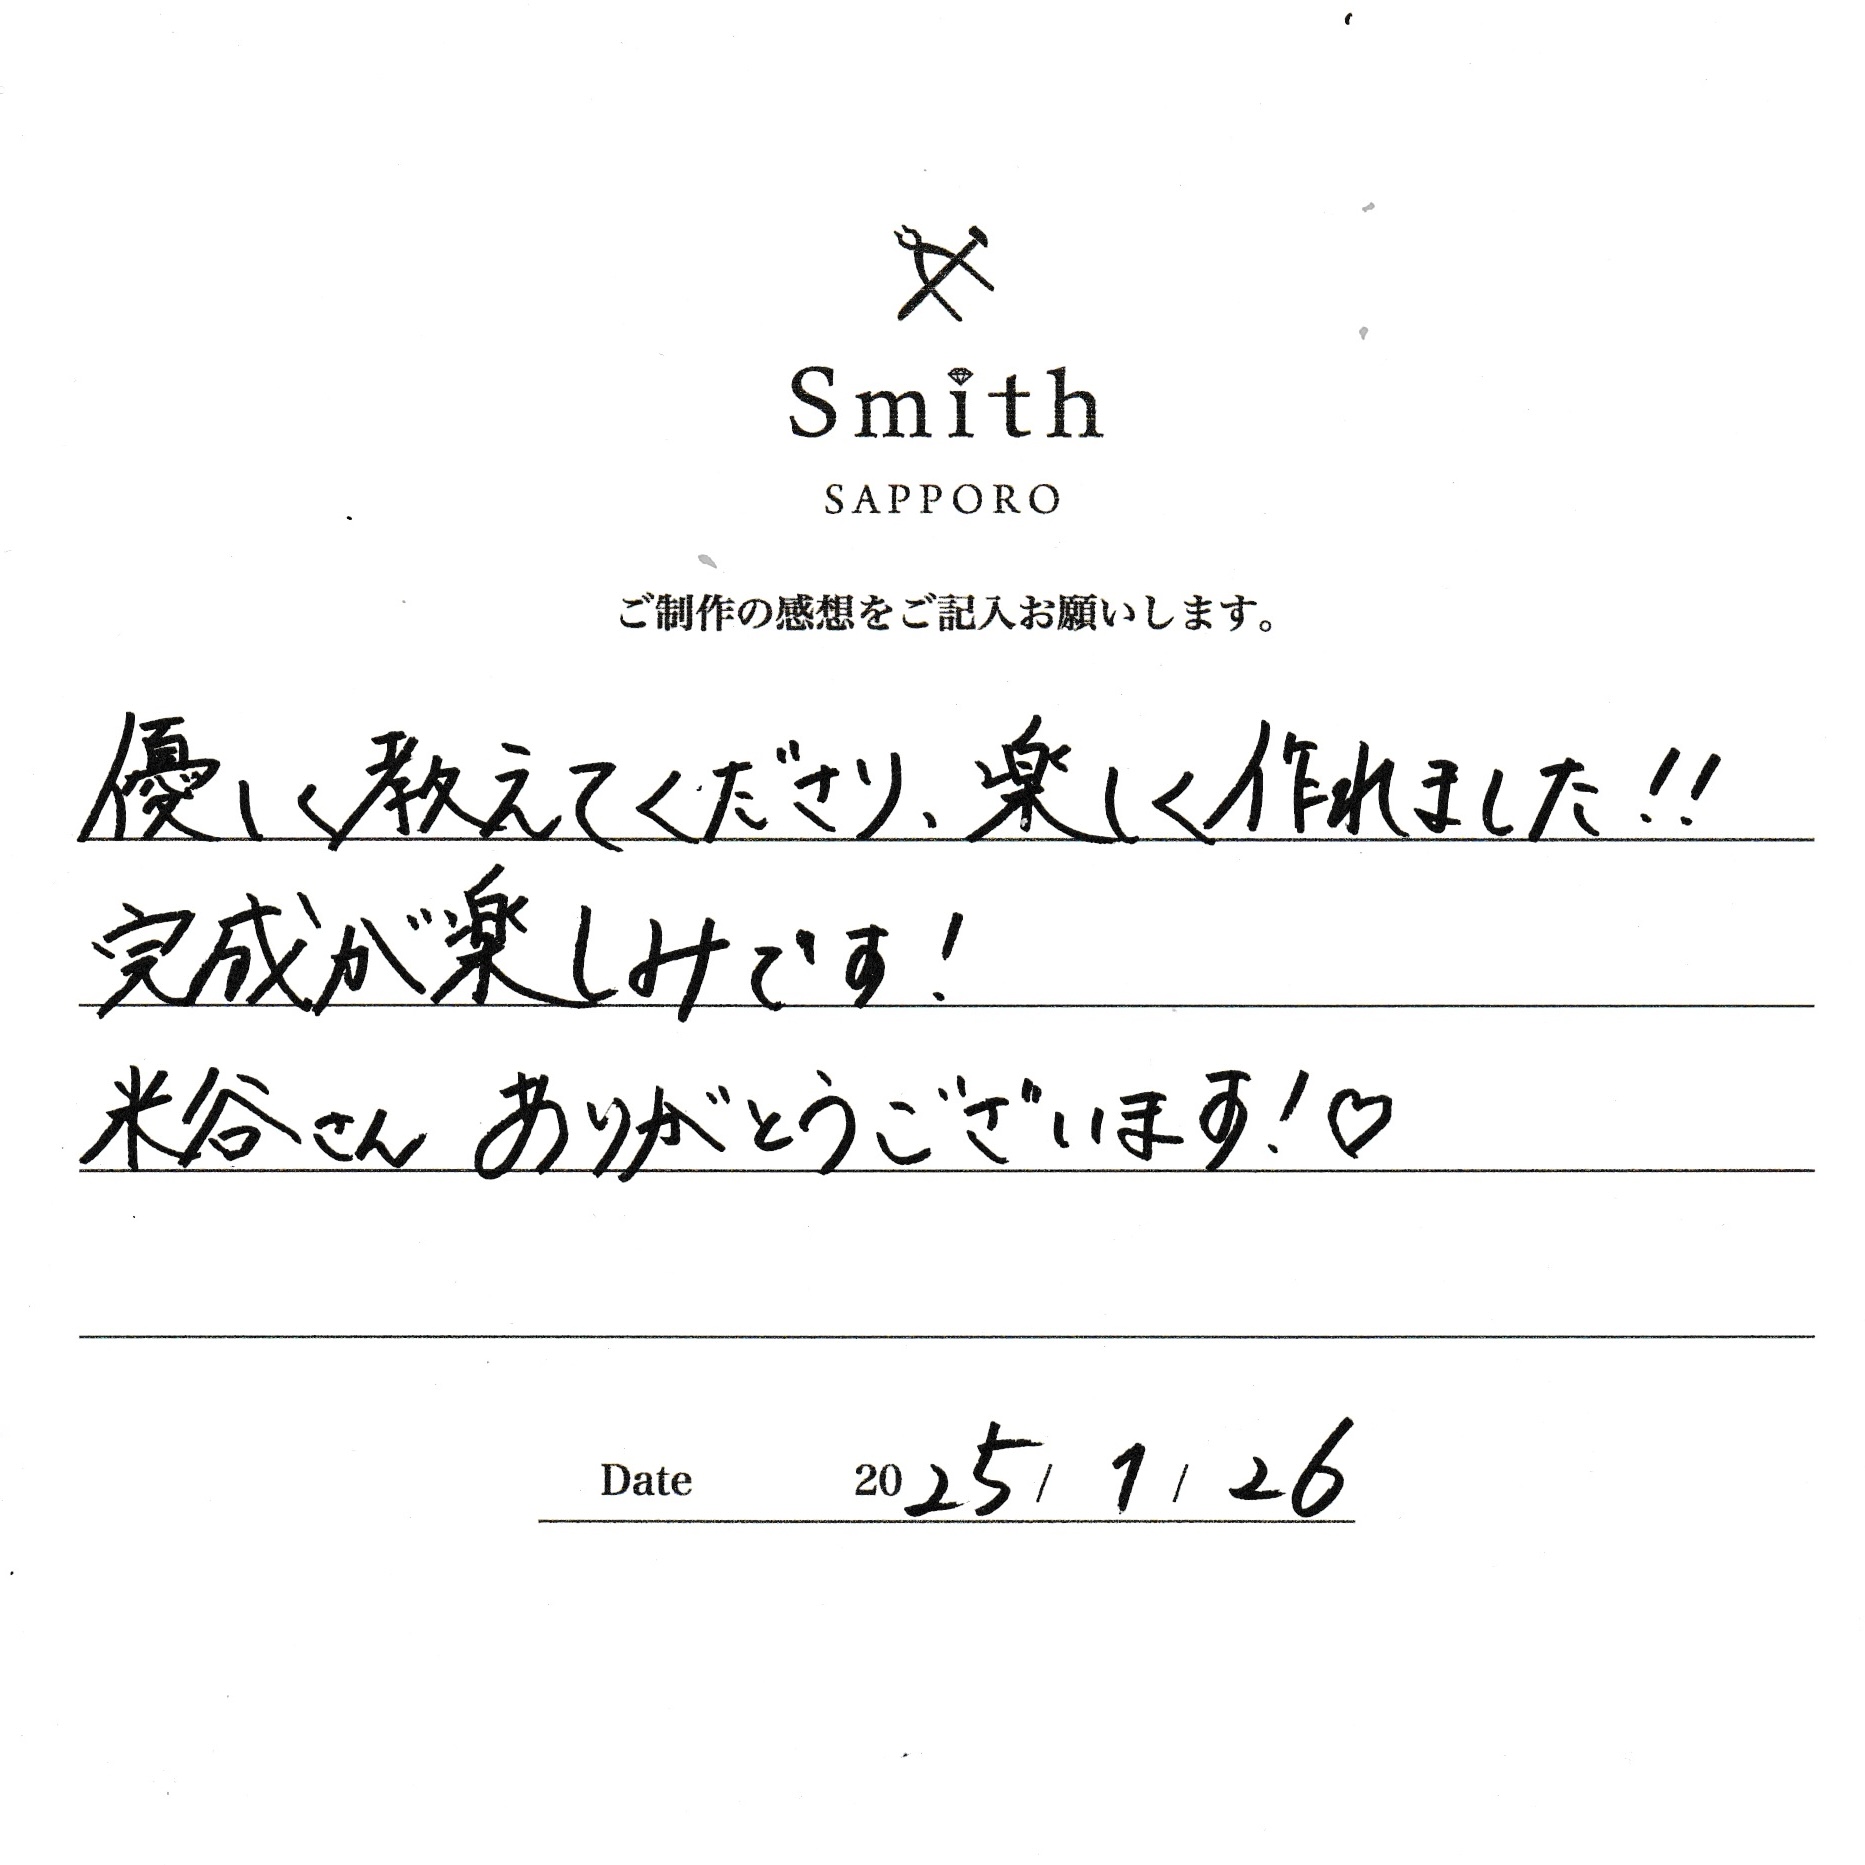 Smith
SAPPORO
ご制作の感想をご記入お願いします。
優しく教えてくださり、楽しく作れました!!
完成が楽しみです!
米谷さん ありがとうございます!♡
Date 2025/1/26